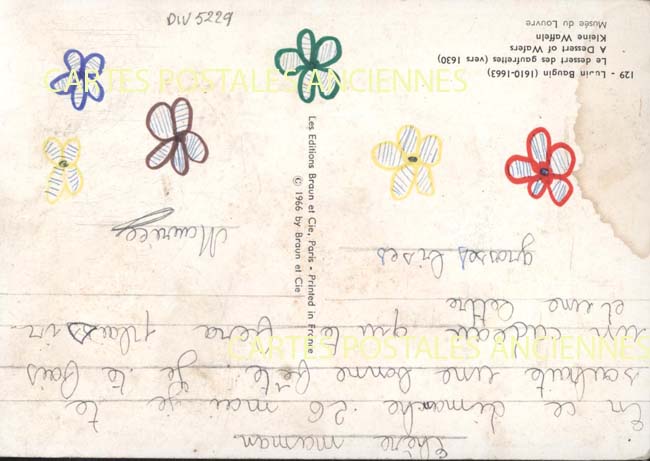 DIV 5229
CARTES POSTALES ANCIENNES
CARTES POSTALES ANCIENNES
Chère maman
En ce dimanche 26 mai je te
souhaite une bonne fête. je te fais
un cadeau qui te fera plaisir
et une lettre
grosses bises
Maurice
129 - Lubin Baugin (1610-1663)
Le dessert des gaufrettes (vers 1630)
A Dessert of Wafers
Kleine Waffeln
Musée du Louvre
Les Editions Braun et Cie, Paris - Printed in France
© 1966 by Braun et Cie